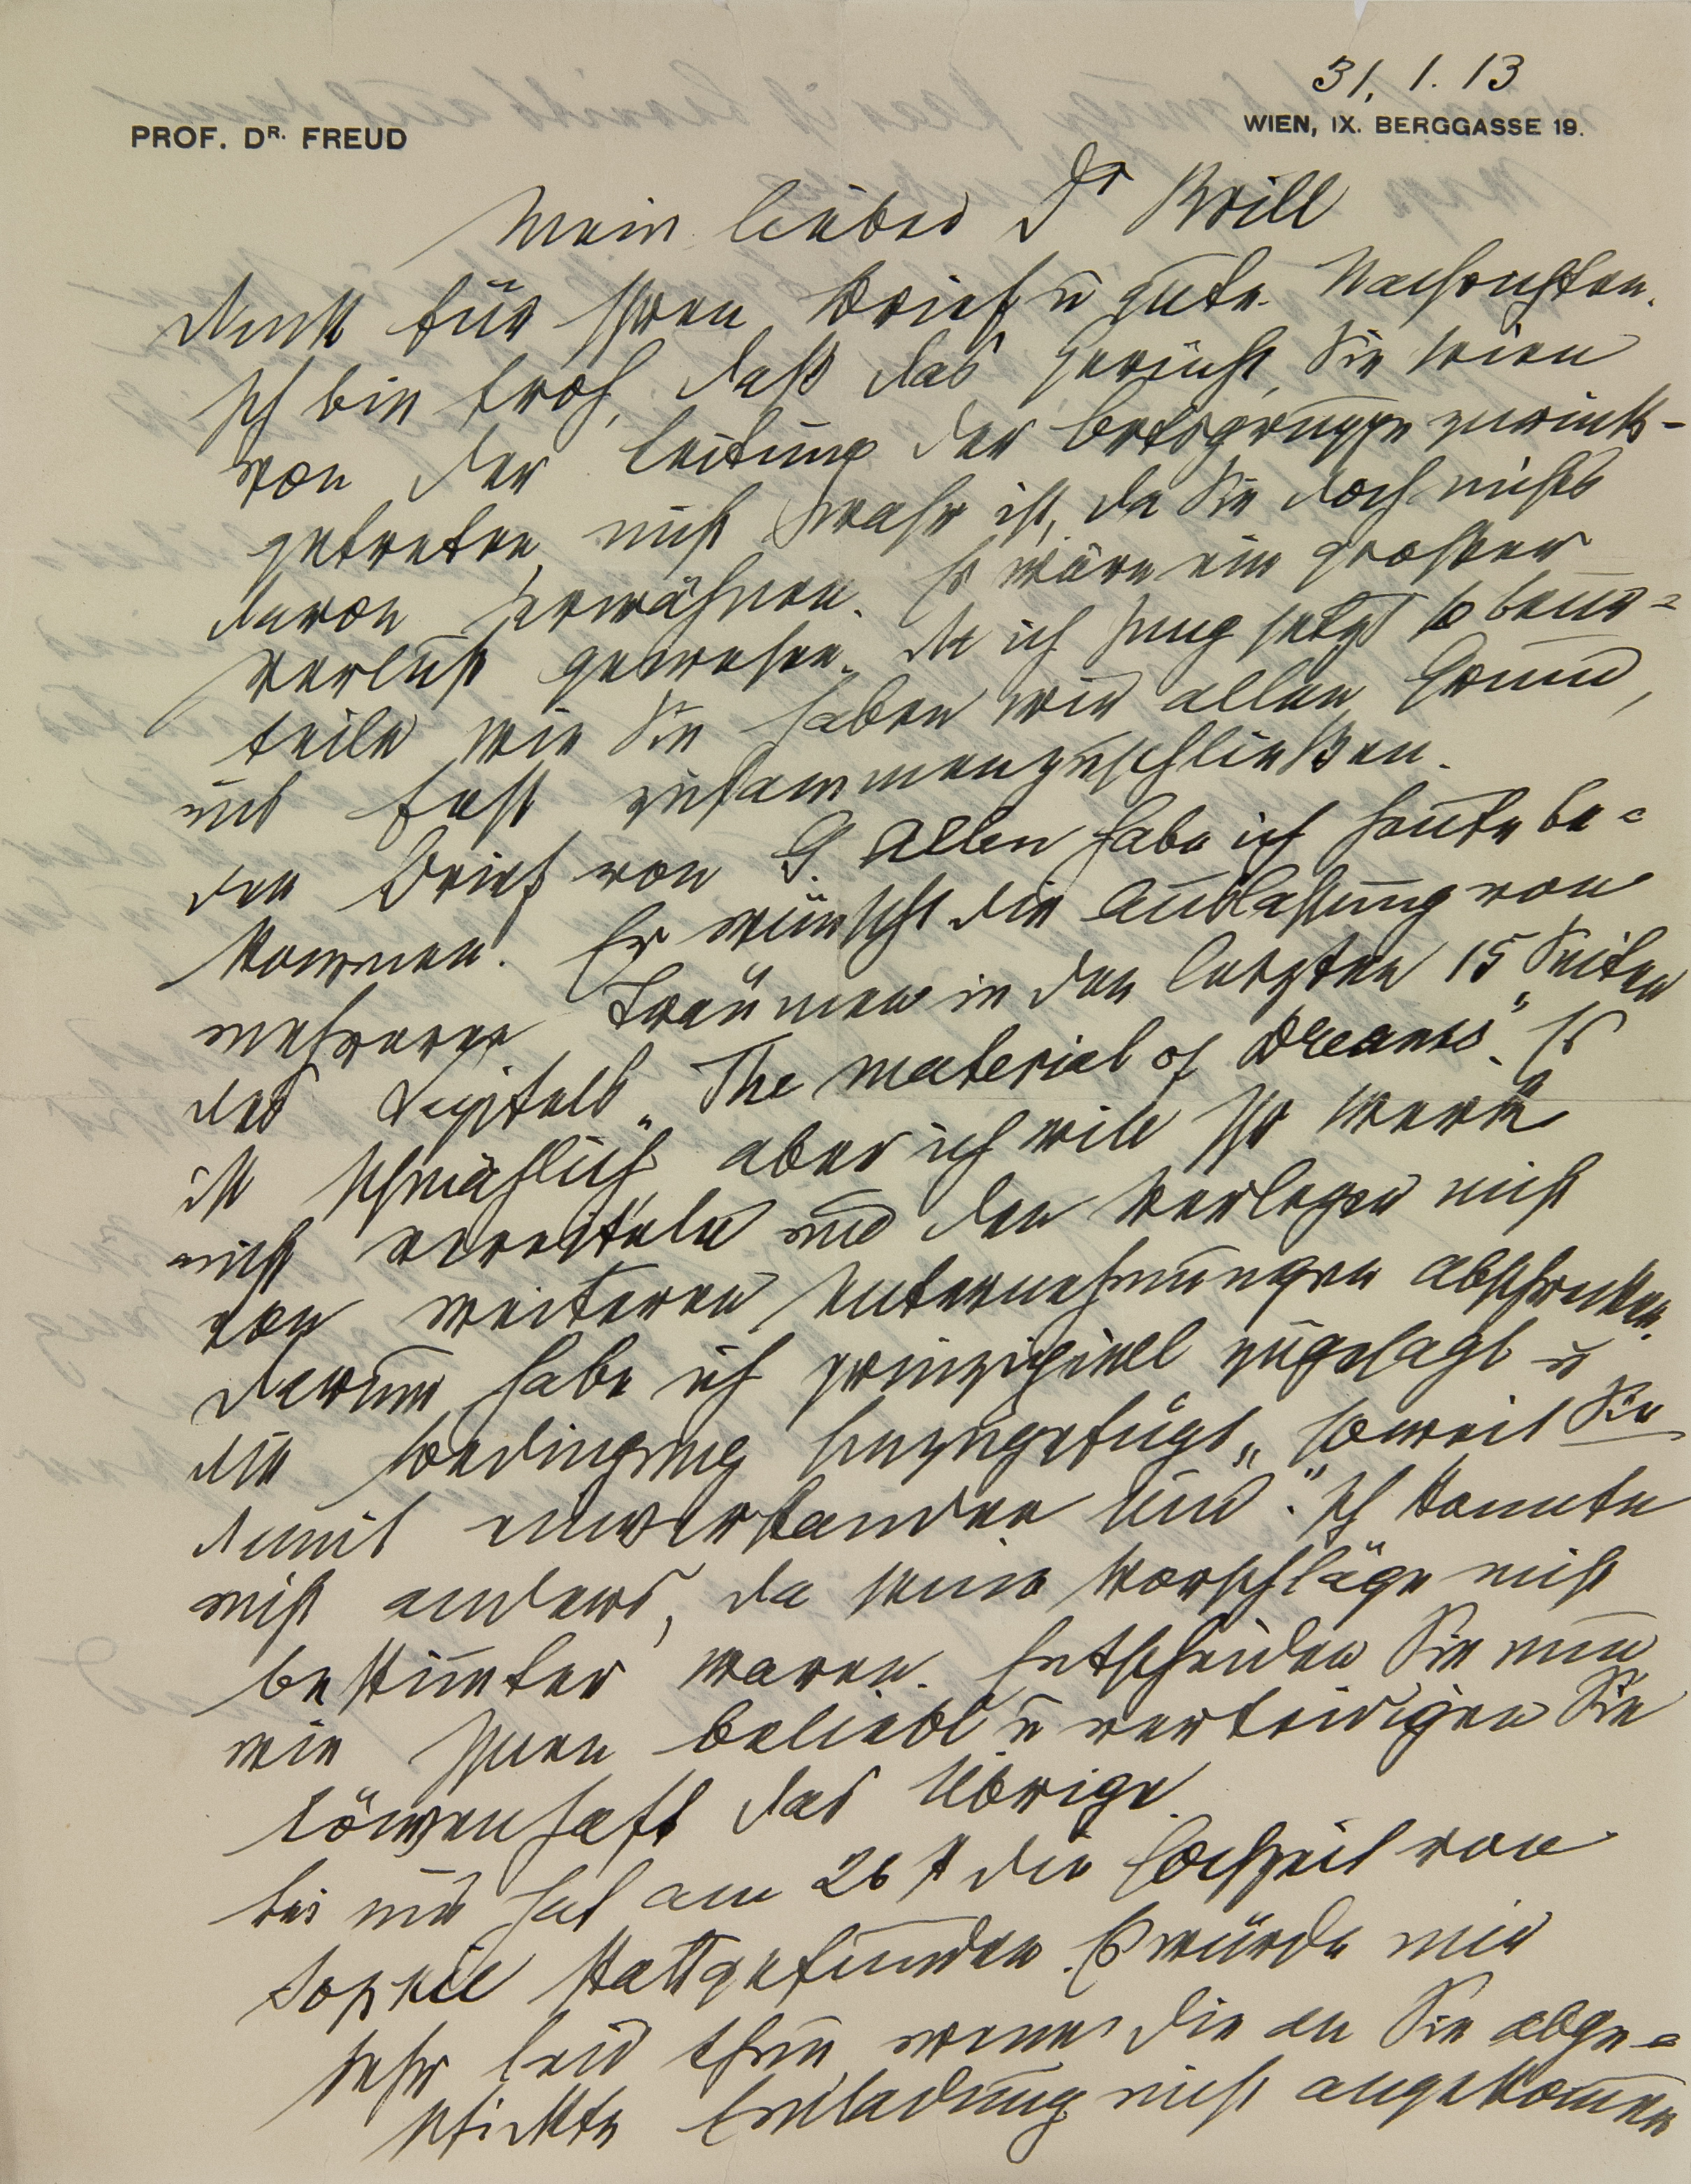 31. 1. 13
PROF. DR. FREUD
WIEN, IX. BERGGASSE 19.
Mein lieber Dr Brill
Dank für Ihren Brief u gute Nachrichten.
Ich bin froh, daß das Gerücht, Sie seien
von der Leitung der Ortsgruppe zurück-
getreten, nicht wahr ist, da Sie doch nichts
davon erwähnen. Es wäre ein großer
Verlust gewesen. Da ich Jung jetzt so beur-
teile wie Sie haben wir allen Grund,
uns fest zusammenzuschließen.
Den Brief von G. Allen habe ich heute be-
kommen. Er wünscht die Auslassung von
mehreren Träumen in den letzten 15 Seiten
des Kapitels „The material of Dreams“. Es
ist schmählich aber ich will Ihr Werk
nicht vereiteln und den Verleger nicht
von weiteren Unternehmungen abschrecken.
Darum habe ich prinzipiell zugesagt u
die Bedingung hinzugefügt „soweit Sie
damit einverstanden sind.“ Ich konnte
nicht anders, da seine Vorschläge nicht
bestimmter waren. Entscheiden Sie nun
wie Ihnen beliebt u verteidigen Sie
löwenhaft das Übrige.
Bei uns hat am 26 die Hochzeit von
Sophie stattgefunden. Es würde mir
sehr leid thun wenn die an Sie abge-
schickte Einladung nicht angekommen